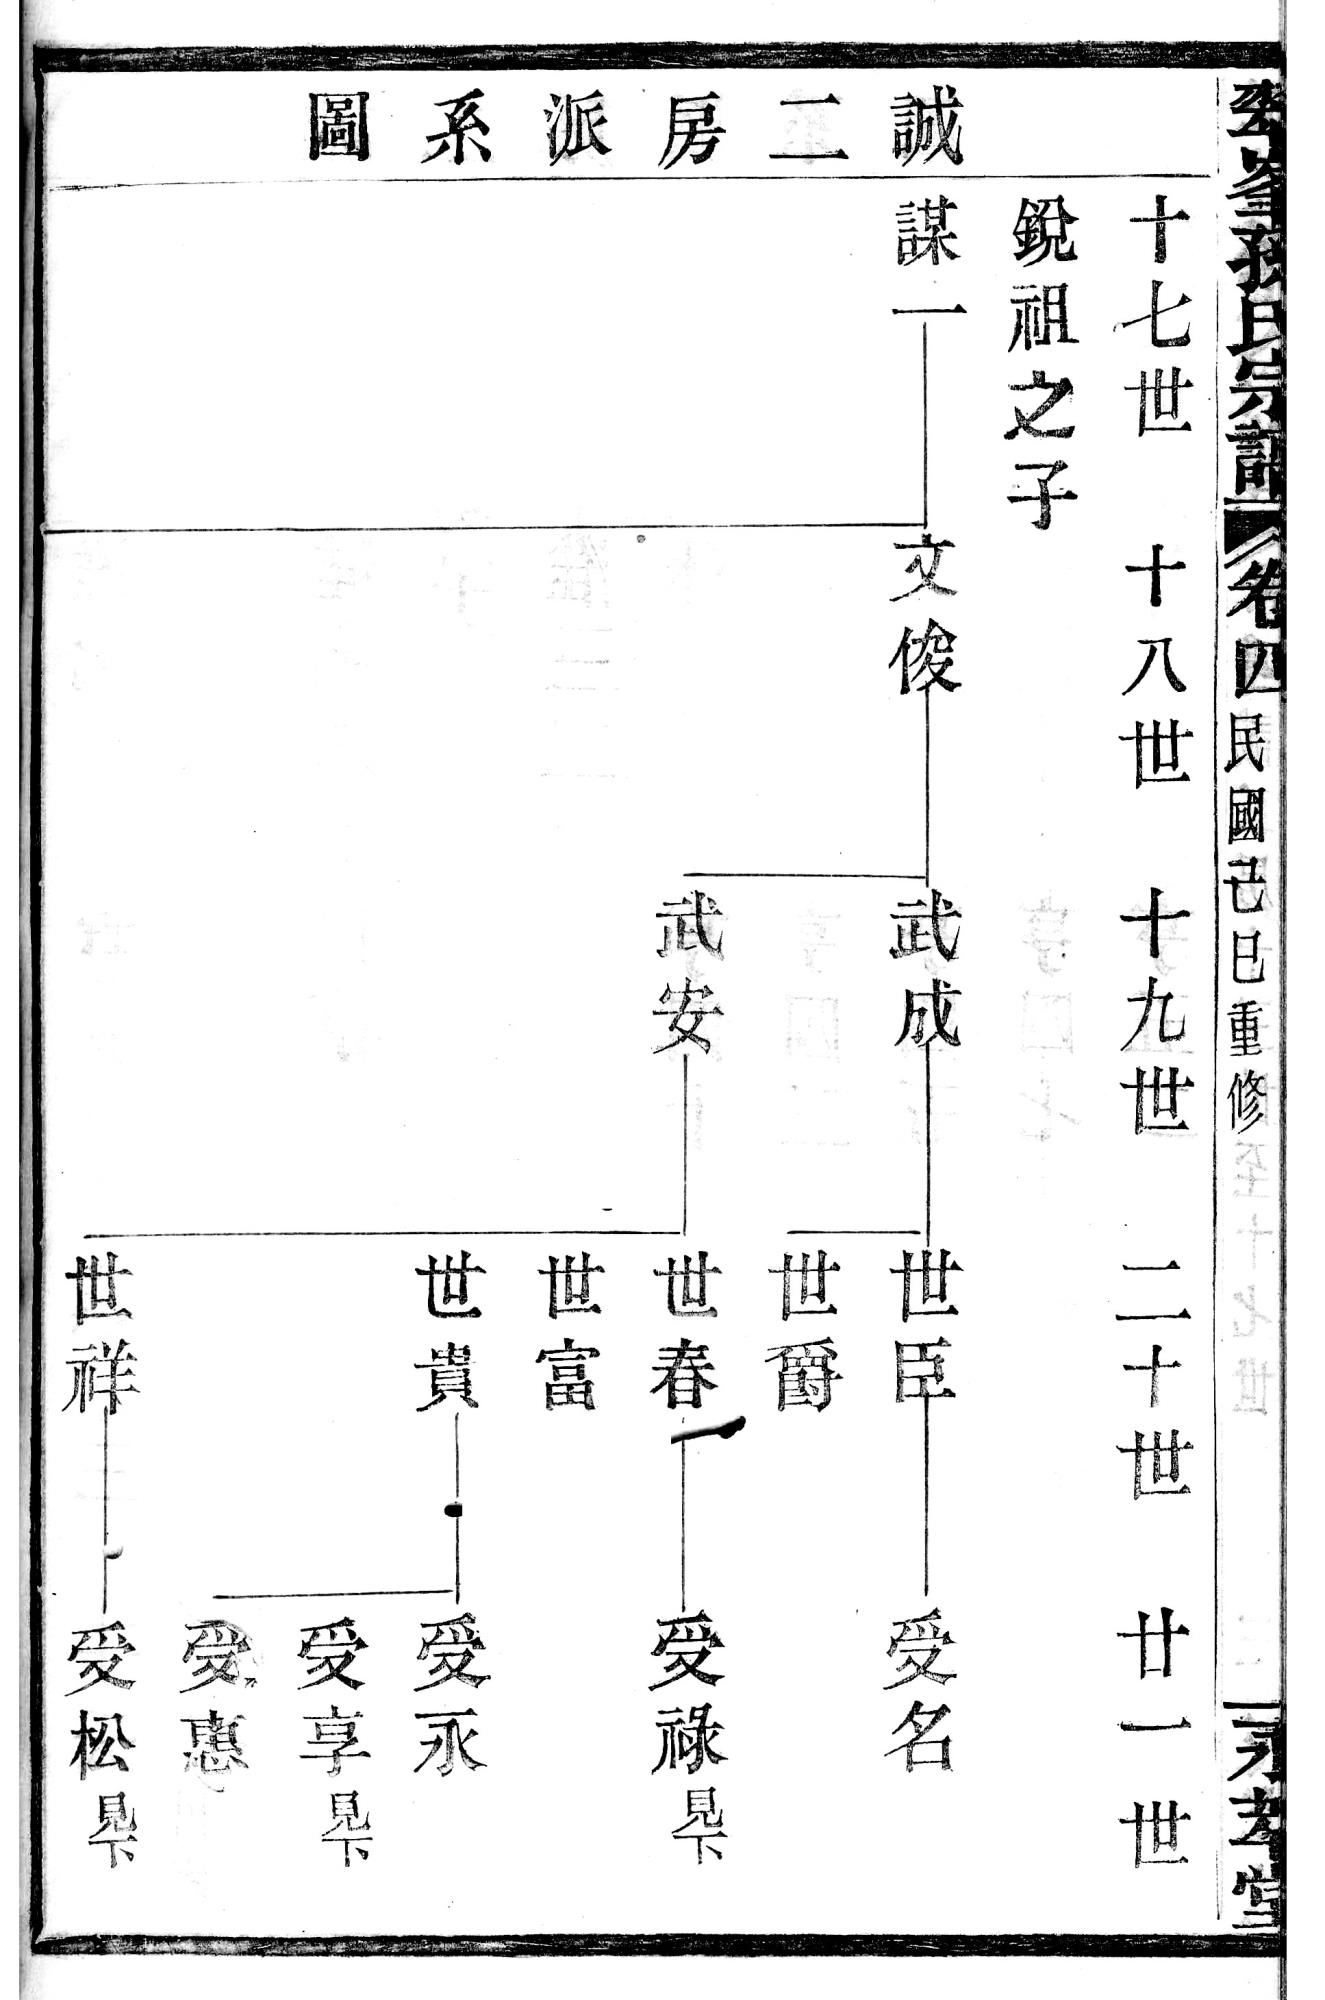 孫氏宗譜
卷四
民國己巳重修
永孝堂
誠二房派系圖
十七世
十八世
十九世
二十世
廿一世
銳祖之子
謀一
文俊
武成
武安
世臣
世爵
世春
世富
世貴
世祥
受名
受祿見下
受永
受享見下
受惠
受松見下